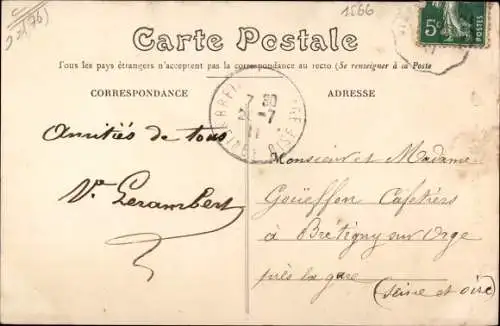 1566
5c
Carte Postale
Tous les pays étrangers n'acceptent pas la correspondance au recto (Se renseigner à la Poste
CORRESPONDANCE
ADRESSE
7 30
7
11
OISE
Amitiés de tous
Vve Lerambert
Monsieur et Madame
Goüeffon Cafetiers
à Brétigny sur Orge
près la gare
(Seine et Oise)